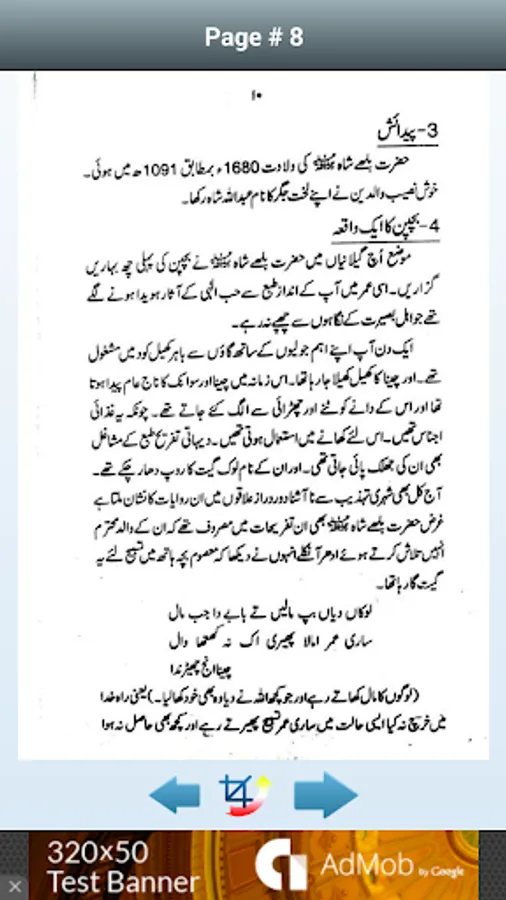 Page # 8
۱۰
3-پیدائش
حضرت بلھے شاہ ﷫ کی ولادت 1680ء بمطابق 1091ھ میں ہوئی۔
خوش نصیب والدین نے اپنے لخت جگر کا نام عبداللہ شاہ رکھا۔
4-بچپن کا ایک واقعہ
موضع اُچ گیلانیاں میں حضرت بلھے شاہ ﷫ نے بچپن کی پہلی چھ بہاریں
گزاریں۔ اسی عمر میں آپ کے انداز طبع سے حب الٰہی کے آثار ہویدا ہونے لگے
تھے جو اہل بصیرت کے نگاہوں سے چھپے نہ رہے۔
ایک دن آپ اپنے اہم جولیوں کے ساتھ گاؤں سے باہر کھیل کود میں مشغول
تھے۔ اور چینا کا کھیل کھیلا جا رہا تھا۔ اس زمانہ میں چینا اور سوانک کا ناج عام پیدا ہوتا
تھا اور اس کے دانے کوٹنے اور چھڑائی سے الگ کئے جاتے تھے۔ چونکہ یہ غذائی
اجناس تھیں۔ اس لئے کھانے میں استعمال ہوتی تھیں۔ دیہاتی تفریح طبع کے مشاغل
بھی ان کی جھلک پائی جاتی تھی۔ اور ان کے نام لوک گیت کا روپ دھار چکے تھے۔
آج کل بھی شہری تہذیب سے نا آشنا دور دراز علاقوں میں ان روایات کا نشان ملتا ہے
غرض حضرت بلھے شاہ ﷫ بھی ان تفریحات میں مصروف تھے کہ ان کے والد محترم
انہیں تلاش کرتے ہوئے ادھر آ نکلے انہوں نے دیکھا کہ معصوم بچہ ہاتھ میں تسبیح لئے یہ
گیت گا رہا تھا۔
لوکاں دیاں جپ مالیں تے بابے دا جب مال
ساری عمر امالا پھیری اک نہ کھتھا وال
چینا انج چھڑیندا
(لوگوں کا مال کھاتے رہے اور جو کچھ اللہ نے دیا وہ بھی خود کھا لیا۔) یعنی راہ خدا
میں خرچ نہ کیا ایسی حالت میں ساری عمر تسبیح پھیرتے رہے اور کچھ بھی حاصل نہ ہوا
320×50
Test Banner
AdMob by Google